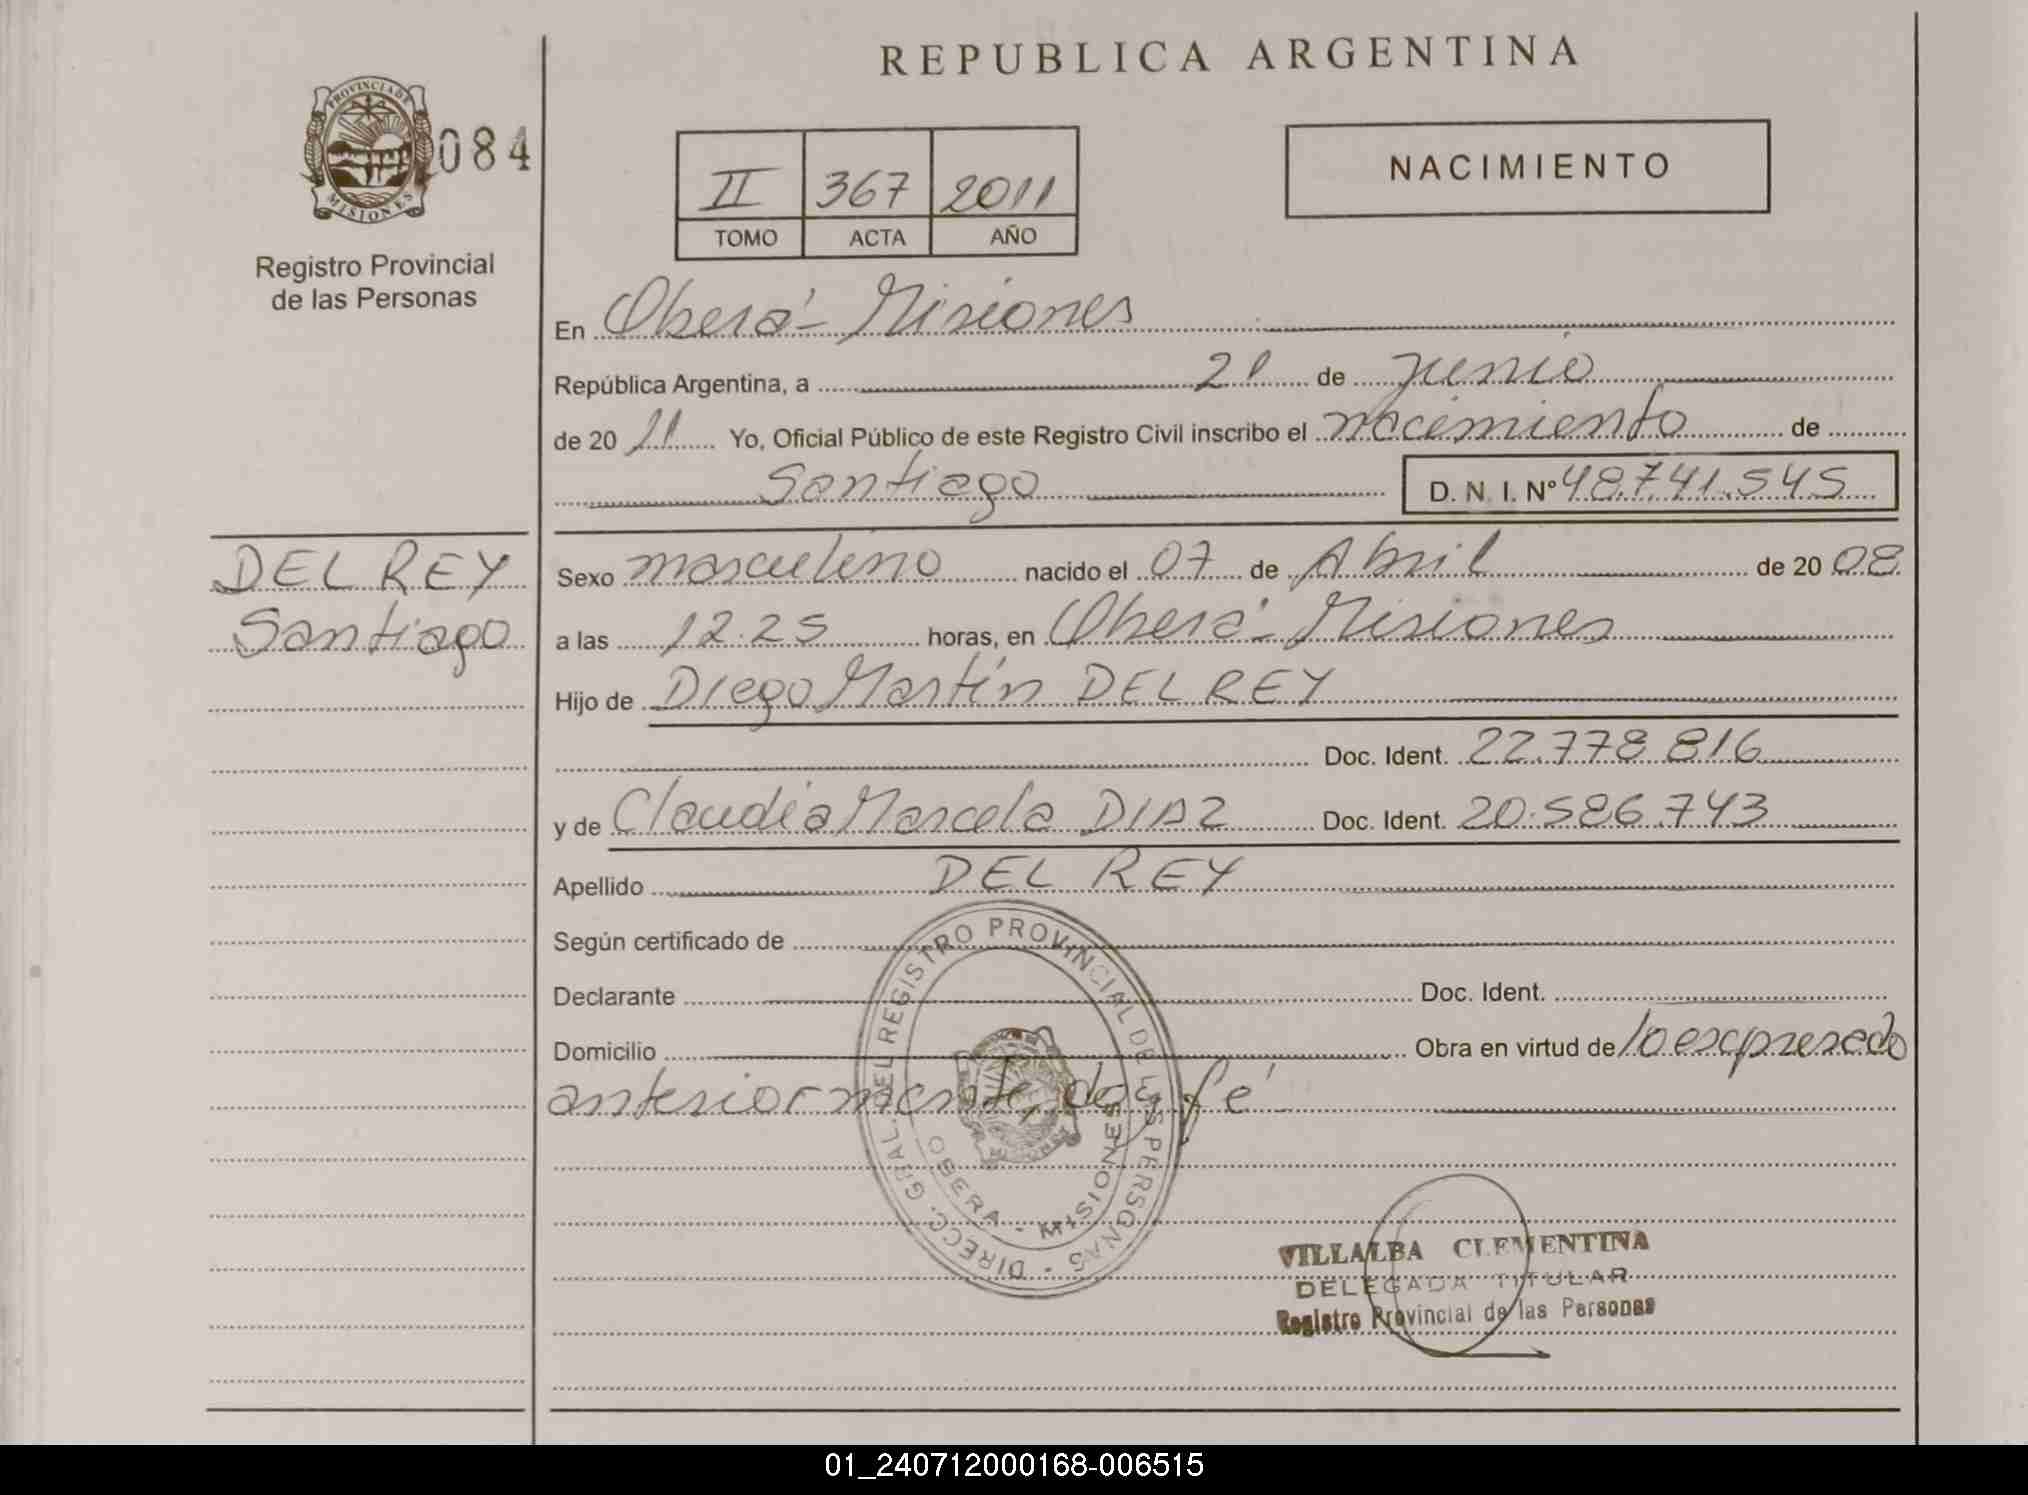 REPUBLICA ARGENTINA
PROVINCIA DE
MISIONES
084
Registro Provincial
de las Personas
II 367 2011
TOMO ACTA AÑO
NACIMIENTO
En Oberá - Misiones
República Argentina, a 21 de junio
de 20 11 Yo, Oficial Público de este Registro Civil inscribo el nacimiento de
Santiago D. N. I. Nº 48.741.545
DEL REY
Santiago
Sexo masculino nacido el 07 de Abril de 20 08
a las 12.25 horas, en Oberá - Misiones
Hijo de Diego Martín DEL REY
Doc. Ident. 22.778.816
y de Claudia Marcela DIAZ Doc. Ident. 20.586.743
Apellido DEL REY
Según certificado de
Declarante Doc. Ident.
Domicilio Obra en virtud de lo expresado
anteriormente, doy fé
DIRECC. GRAL. DEL REGISTRO PROVINCIAL DE LAS PERSONAS
OBERA - MISIONES
VILLALBA CLEMENTINA
DELEGADA TITULAR
Registro Provincial de las Personas
01_240712000168-006515